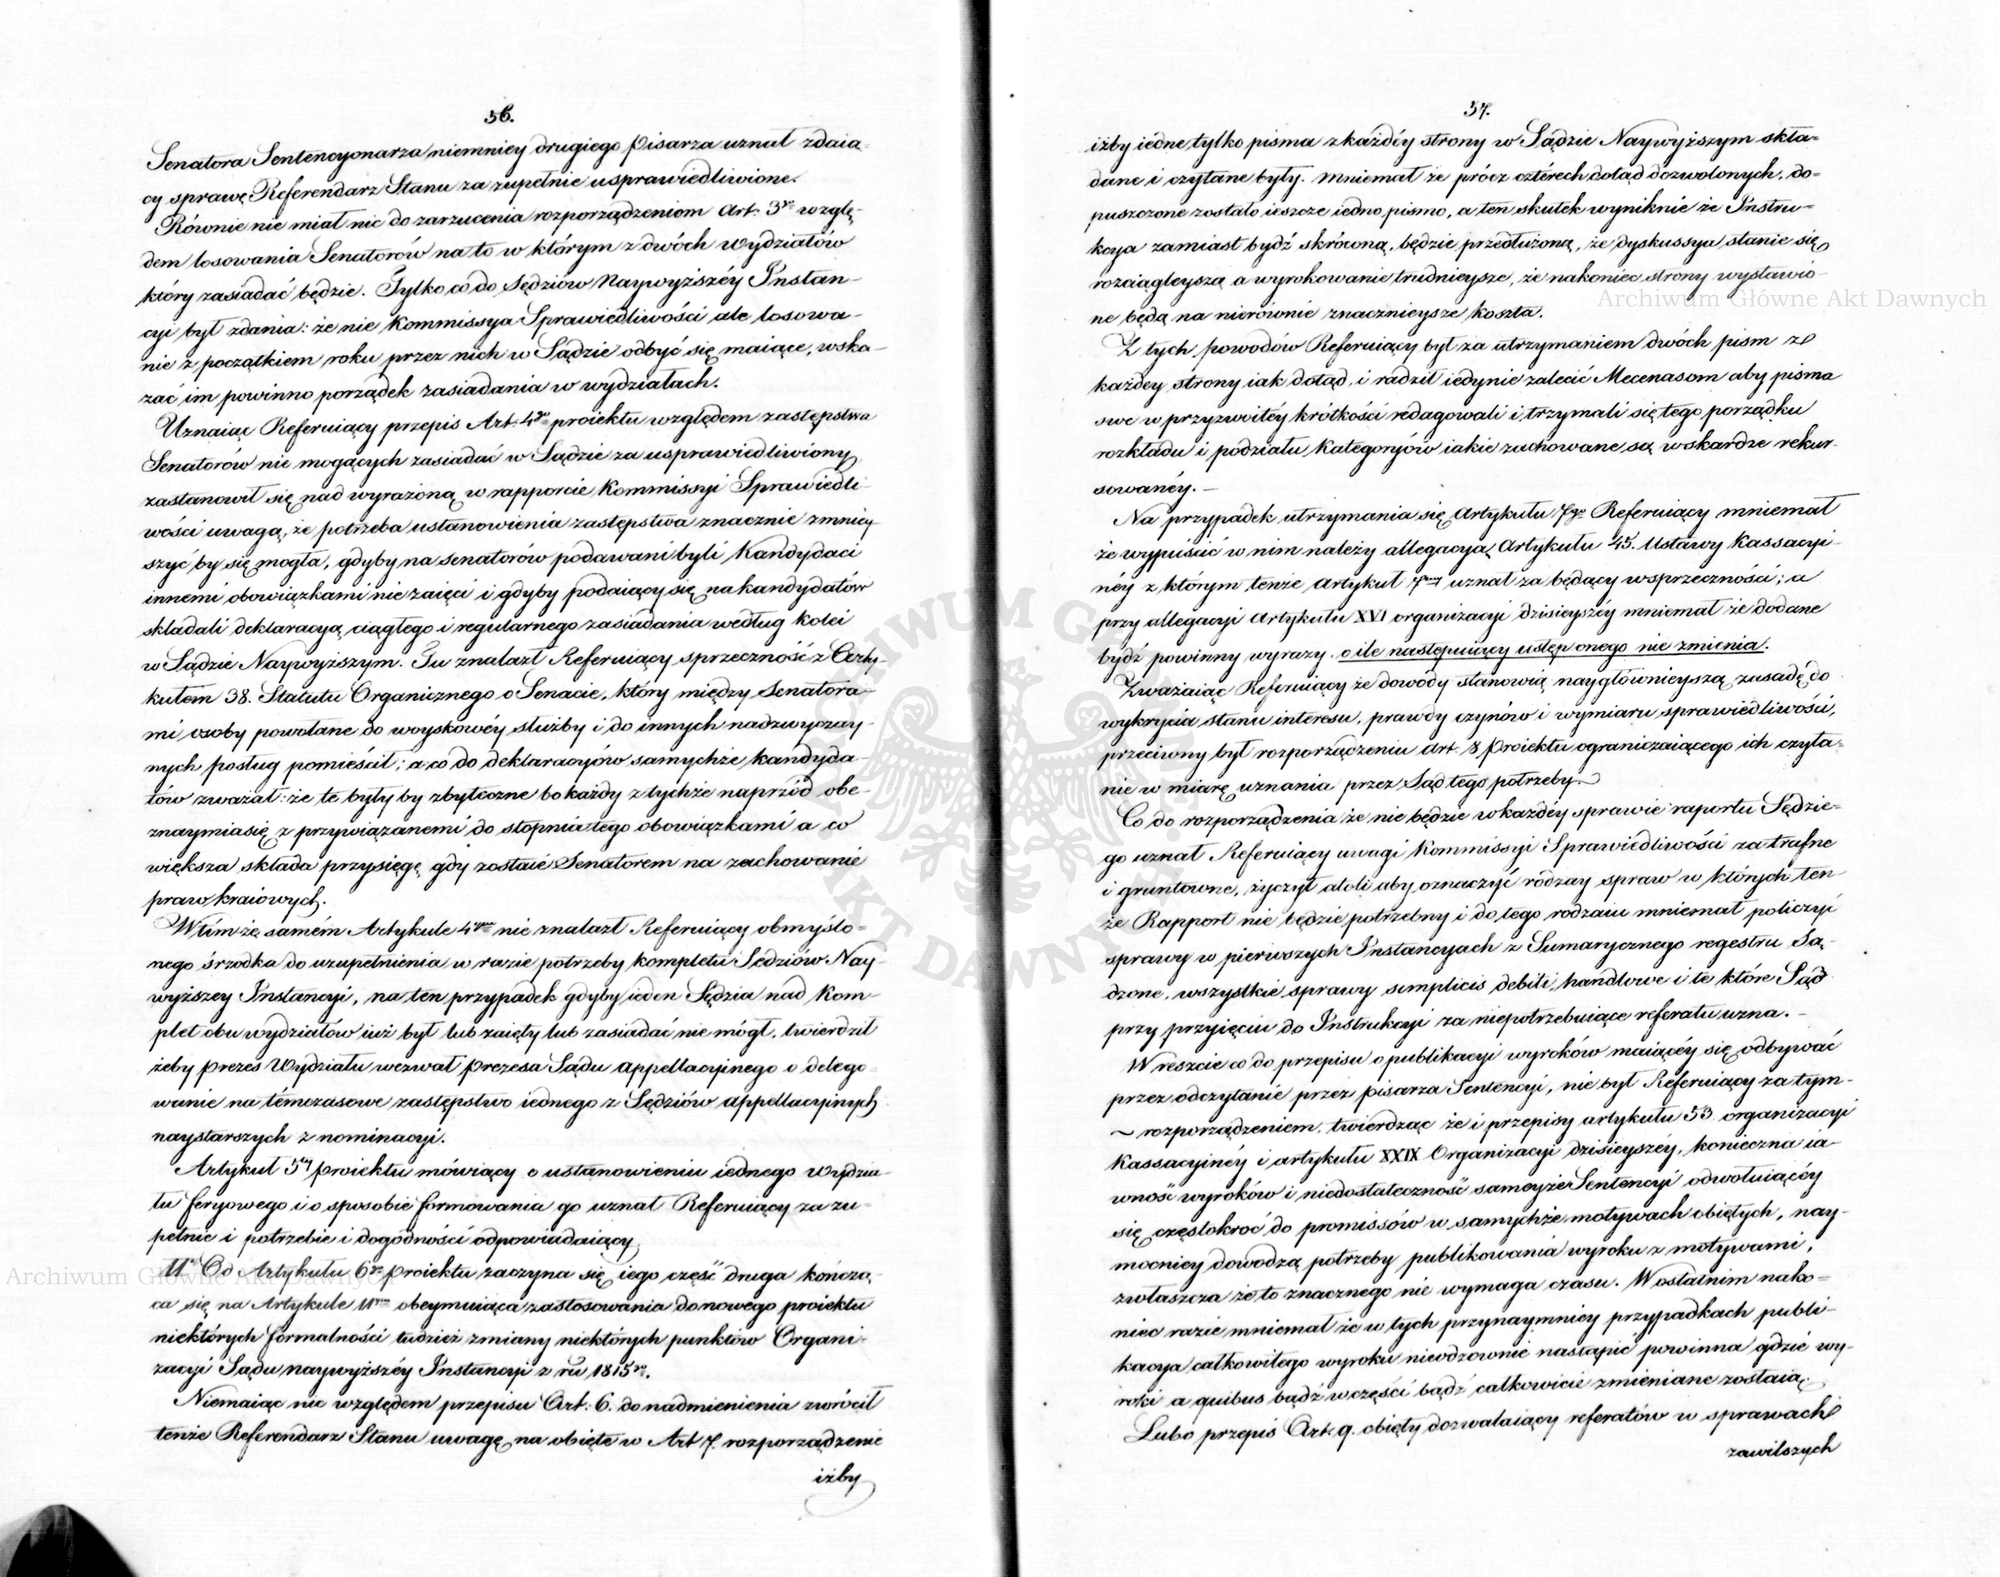 56.
Senatora Sentencyonarza niemniey drugiego Pisarza uznał zdaią-
cy sprawę Referendarz Stanu za zupełnie usprawiedliwione.
Równie nie miał nic do zarzucenia rozporządzeniom Art. 3go wzglę-
dem losowania Senatorów na to w którym z dwóch Wydziałów
który zasiadać będzie. Tylko co do Sędziów Naywyższéy Instan-
cyi był zdania: że nie Kommissya Sprawiedliwości ale losowa-
nie z początkiem roku przez nich w Sądzie odbyć się maiące, wska-
zać im powinno porządek zasiadania w wydziałach.
Uznaiąc Referuiący przepis Art. 4go proiektu względem zastępstwa
Senatorów nie mogących zasiadać w Sądzie za usprawiedliwiony
zastanowił się nad wyrażoną w rapporcie Kommissyi Sprawiedli-
wości uwagą, że potrzeba ustanowienia zastępstwa znacznie zmniey-
szyć by się mogła, gdyby na senatorów podawani byli Kandydaci
innemi obowiązkami nie zaięci i gdyby podaiący się na kandydatów
składali deklaracyą ciągłego i regularnego zasiadania według kolei
w Sądzie Naywyższym. Tu znalazł Referuiący sprzeczność z Arty-
kułem 38. Statutu Organicznego o Senacie, który między Senatora-
mi osoby powołane do woyskowéy służby i do innych nadzwyczay-
nych posług pomieścił; a co do deklaracyów samychże kandyda-
tów zważał: że te byłyby zbyteczne bo każdy z tychże naprzód obe-
znaymia się z przywiązanemi do stopnia tego obowiązkami a co
większa składa przysięgę gdy zostaie Senatorem na zachowanie
praw kraiowych.
W tím że samém Artykule 4tym nie znalazł Referuiący obmyślo-
nego śrzodka do uzupełnienia w razie potrzeby kompletu Sędziów Nay-
wyższey Instancyi, na ten przypadek gdyby ieden Sędzia nad Kom-
plet obu wydziałów iuż był lub zaięty lub zasiadać nie mógł, twierdził
żeby Prezes Wydziału wezwał Prezesa Sądu Appellacyinego o delego-
wanie na témczasowe zastępstwo iednego z Sędziów Appellacyinych
naystarszych z nominacyi.
Artykuł 5ty Proiektu mówiący o ustanowieniu iednego Wydzia-
łu feryowego i o sposobie formowania go uznał Referuiący za zu-
pełnie i potrzebie i dogodności odpowiadaiący.
Od Artykułu 6go Proiektu zaczyna się iego część druga kończą-
ca się na Artykule 11tym obeymuiąca zastosowania do nowego proiektu
niektórych formalności tudzież zmiany niektórych punktów Organi-
zacyi Sądu Naywyższéy Instancyi z ru 1815go.
Niemaiąc nic względem przepisu Art. 6. do nadmienienia zwrócił
tenże Referendarz Stanu uwagę na obięte w Art 7. rozporządzenie
iżby
57.
iżby iedne tylko pisma z każdéy strony w Sądzie Naywyższym skła-
dane i czytane były. Mniemał że prócz cztérech dotąd dozwolonych, do-
puszczone zostało ieszcze iedno pismo, a ten skutek wyniknie że Instru-
kcya zamiast bydź skróconą, będzie przedłużoną, że dyskussya stanie się
rozciągleyszą a wyrokowanie trudnieysze, że nakoniec strony wystawio-
ne będą na nierównie znacznieysze koszta.
Z tych powodów Referuiący był za utrzymaniem dwóch pism z
każdey strony iak dotąd, i radził iedynie zalecić Mecenasom aby pisma
swe w przyzwoitéy krótkości redagowali i trzymali się tego porządku
rozkładu i podziału Kategoryów iakie zachowane są w skardze rekur-
sowanéy. —
Na przypadek utrzymania się Artykułu 7go Referuiący mniemał
że wypuścić w nim należy allegacyą Artykułu 45. Ustawy Kassacyi-
néy z którym tenże Artykuł 7my uznał za będący w sprzeczności; a
przy allegacyi Artykułu XVI organizacyi dzisieyszéy mniemał że dodane
bydź powinny wyrazy: o ile następuiący ustęp onego nie zmienia.
Zważaiąc Referuiący że dowody stanowią naygłównieyszą zasadę do
wykrycia stanu interesu, prawdy czynów i wymiaru sprawiedliwości,
przeciwny był rozporządzeniu Art. 8 Proiektu ograniczaiącego ich czyta-
nie w miarę uznania przez Sąd tego potrzeby.
Co do rozporządzenia że nie będzie w każdéy sprawie raportu Sędzie-
go uznał Referuiący uwagi Kommissyi Sprawiedliwości za trafne
i gruntowne, życzył atoli aby oznaczyć rodzay spraw w których ten-
że Rapport nie będzie potrzebny i do tego rodzaiu mniemał policzyć
sprawy w pierwszych Instancyach z Sumarycznego regestru są-
dzone, wszystkie sprawy simplicis debiti, handlowe i te które Sąd
przy przyięciu do Instrukcyi za niepotrzebuiące referatu uzna. —
W reszcie co do przepisu o publikacyi wyroków maiącéy się odbywać
przez odczytanie przez pisarza Sentencyi, nie był Referuiący za tym-
~ rozporządzeniem, twierdząc że i przepisy artykułu 53 organizacyi
Kassacyinéy i artykułu XXIX Organizacyi dzisieyszéy, konieczna ia-
wność wyroków i niedostateczność sameyże Sentencyi odwołuiącéy
się częstokroć do promissów w samychże motywach obiętych, nay-
mocniey dowodzą potrzeby publikowania wyroku z motywami,
zwłaszcza że to znacznego nie wymaga czasu. W ostatnim nako-
niec razie mniemał że w tych przynaymniey przypadkach publi-
kacya całkowitego wyroku nieodzownie nastąpić powinna gdzie wy-
roki a quibus bądź w części bądź całkowicie zmieniane zostaią.
Lubo przepis Art. 9. obięty dozwalaiący referatów w sprawach
zawilszych
Archiwum Główne Akt Dawnych
Archiwum Główne Akt Dawnych
ARCHIWUM GŁÓWNE AKT DAWNYCH